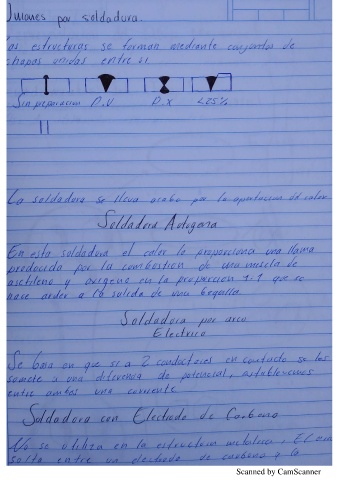 Uniones por soldadura.
Las estructuras se forman mediante conjuntos de
chapas unidas entre si
Sin preparacion P.V P.X <25%
La soldadura se lleva acabo por la aportacion del calor
Soldadura Autogena
En esta soldadura el calor lo proporciona una llama
producida por la combustion de una mezcla de
acetileno y oxigeno en la proporcion 1-1 que se
hace arder a la salida de una boquilla.
Soldadura por arco
Electrico
Se basa en que si a 2 conductores en contacto se les
somete a una diferencia de potencial, establecemos
entre ambos una corriente
Soldadura con Electrodo de Carbono
No se utiliza en la estructura metalica, El arco
salta entre un electrodo de carbono y la
Scanned by CamScanner